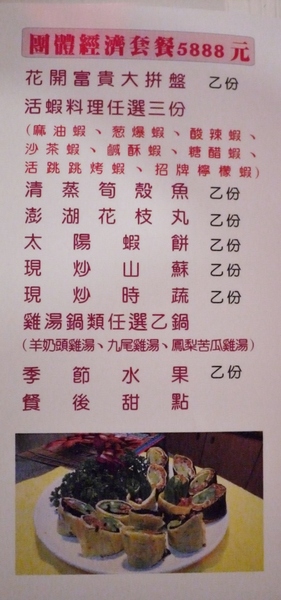 團體經濟套餐5888元
花開富貴大拼盤 乙份
活蝦料理任選三份
(麻油蝦、葱爆蝦、酸辣蝦、
沙茶蝦、鹹酥蝦、糖醋蝦、
活跳跳烤蝦、招牌檸檬蝦)
清蒸筍殼魚 乙份
澎湖花枝丸 乙份
太陽蝦餅 乙份
現炒山蘇 乙份
現炒時蔬 乙份
雞湯鍋類任選乙鍋
(羊奶頭雞湯、九尾雞湯、鳳梨苦瓜雞湯)
季節水果 乙份
餐後甜點